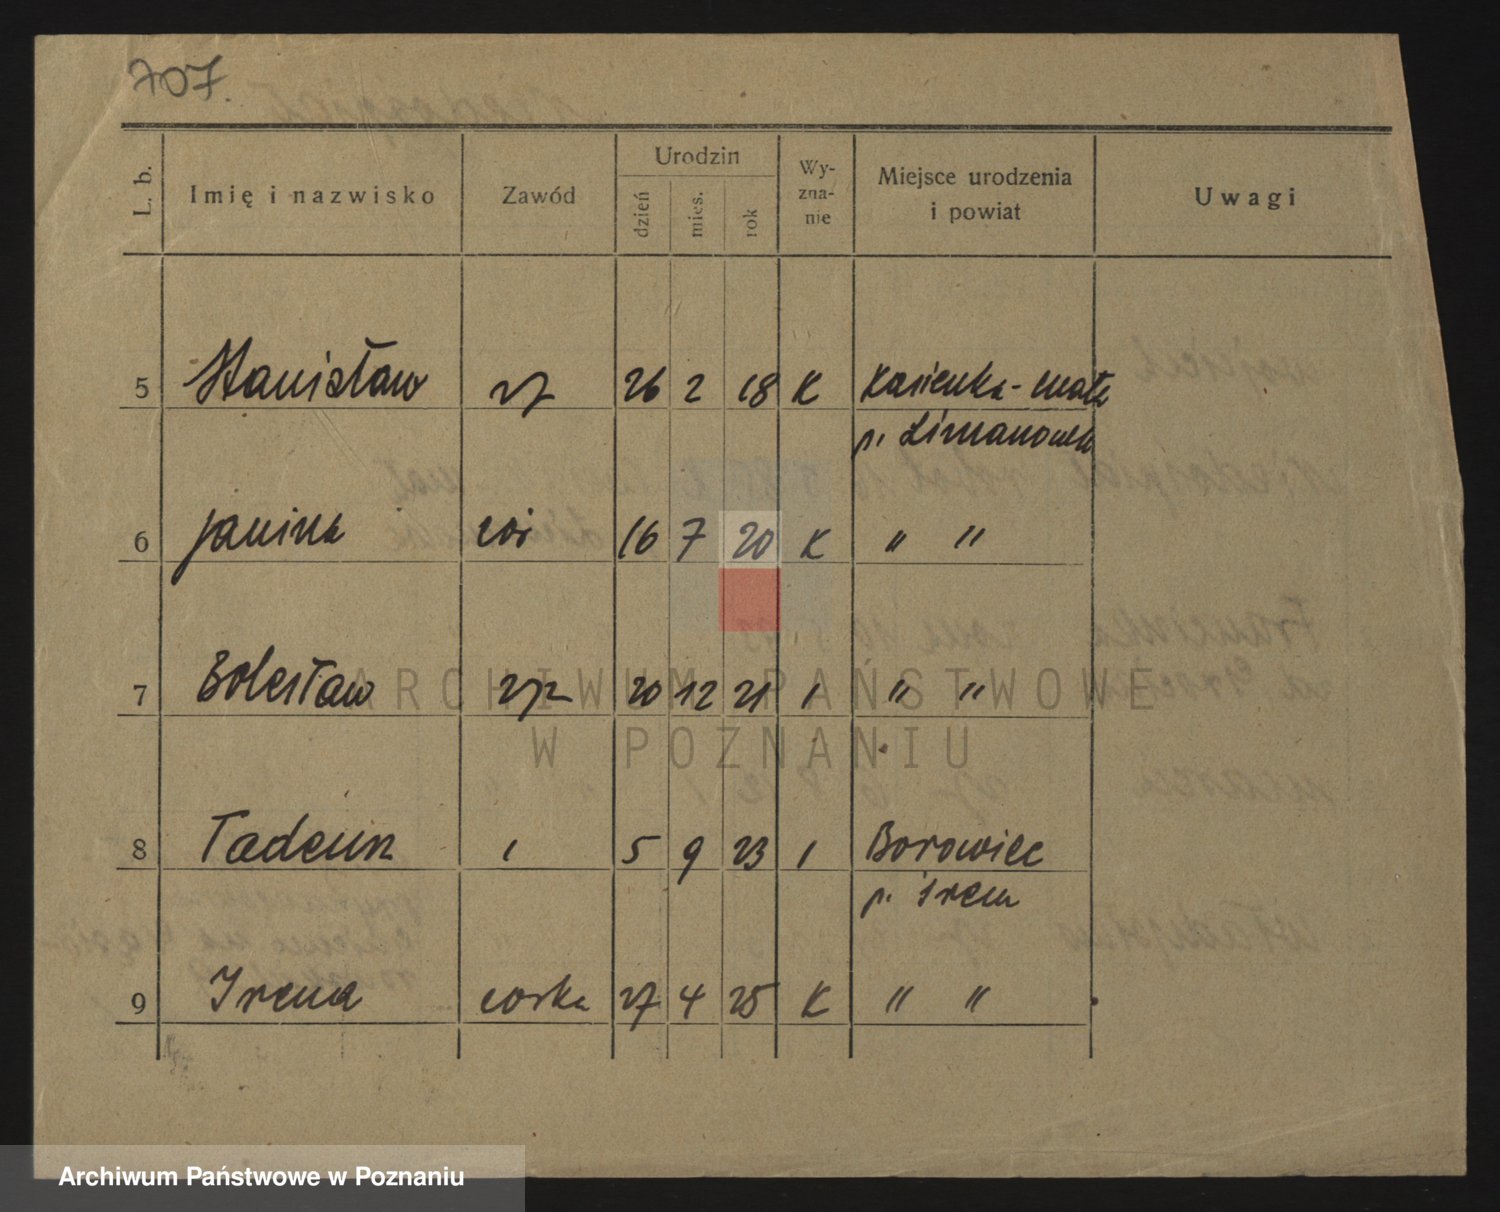 707.
L. b. Imię i nazwisko Zawód Urodzin dzień mies. rok Wy-zna-nie Miejsce urodzenia i powiat Uwagi
5 Stanisław 26 2 18 K Kasienka-mała
p. Limanowa
6 Janina 16 7 20 K " "
7 Bolesław 20 12 21 " "
8 Tadeusz 5 9 23 Borowiec
p. Śrem
9 Irena corka 27 4 25 K " "
ARCHIWUM PAŃSTWOWE
W POZNANIU
Archiwum Państwowe w Poznaniu